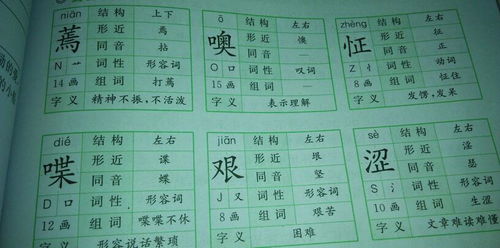 niān 结构 上下
蔫 形近 焉
同音 拈
N 艹 词性 形容词
14画 组词 打蔫
字义 精神不振,不活泼
ō 结构 左右
噢 形近 懊
同音 —
O 口 词性 叹词
15画 组词 —
字义 表示理解
zhèng 结构 左右
怔 形近 征
同音 正
Z 忄 词性 动词
8画 组词 怔住
字义 发愣,发呆
dié 结构 左右
喋 形近 谍
同音 蝶
D 口 词性 形容词
12画 组词 喋喋不休
字义 形容说话繁琐
jiān 结构 左右
艰 形近 垠
同音 坚
J 又 词性 形容词
8画 组词 艰苦
字义 困难
sè 结构 左右
涩 形近 涩
同音 瑟
S 氵 词性 形容词
10画 组词 生涩
字义 文章难读难懂